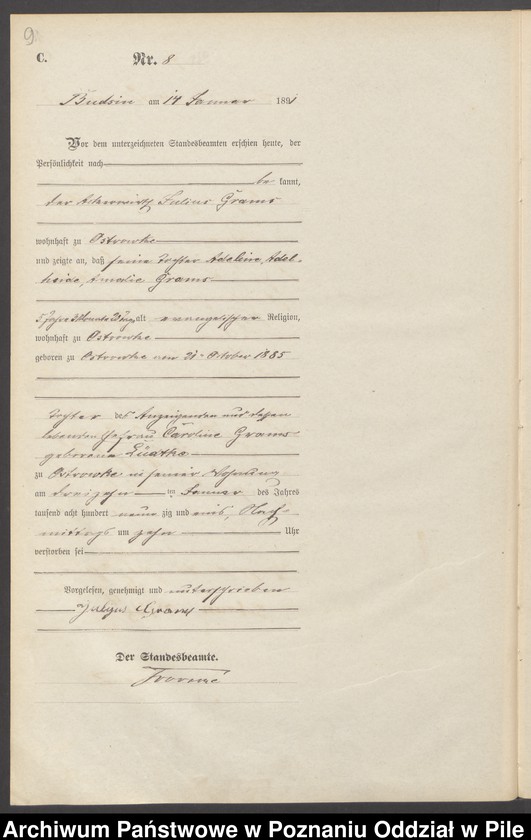 9.
C.
Nr. 8
Budsin am 14 Januar 1891
Vor dem unterzeichneten Standesbeamten erschien heute, der
Persönlichkeit nach
be kannt,
der Ackerwirth Julius Grams
wohnhaft zu Ostrowke
und zeigte an, daß seine Tochter Adeline, Adel-
heide, Amalie Grams
5 Jahre 2 Monate alt evangelischer Religion,
wohnhaft zu Ostrowke
geboren zu Ostrowke am 21. October 1885
Tochter des Anzeigenden und dessen
lebenden Ehefrau Caroline Grams
geborene Luedtke
zu Ostrowke in seiner Wohnung
am dreizehn ten Januar des Jahres
tausend acht hundert neun zig und eins, Nach-
mittags um zehn Uhr
verstorben sei
Vorgelesen, genehmigt und unterschrieben
Julius Grams
Der Standesbeamte.
Archiwum Państwowe w Poznaniu Oddział w Pile